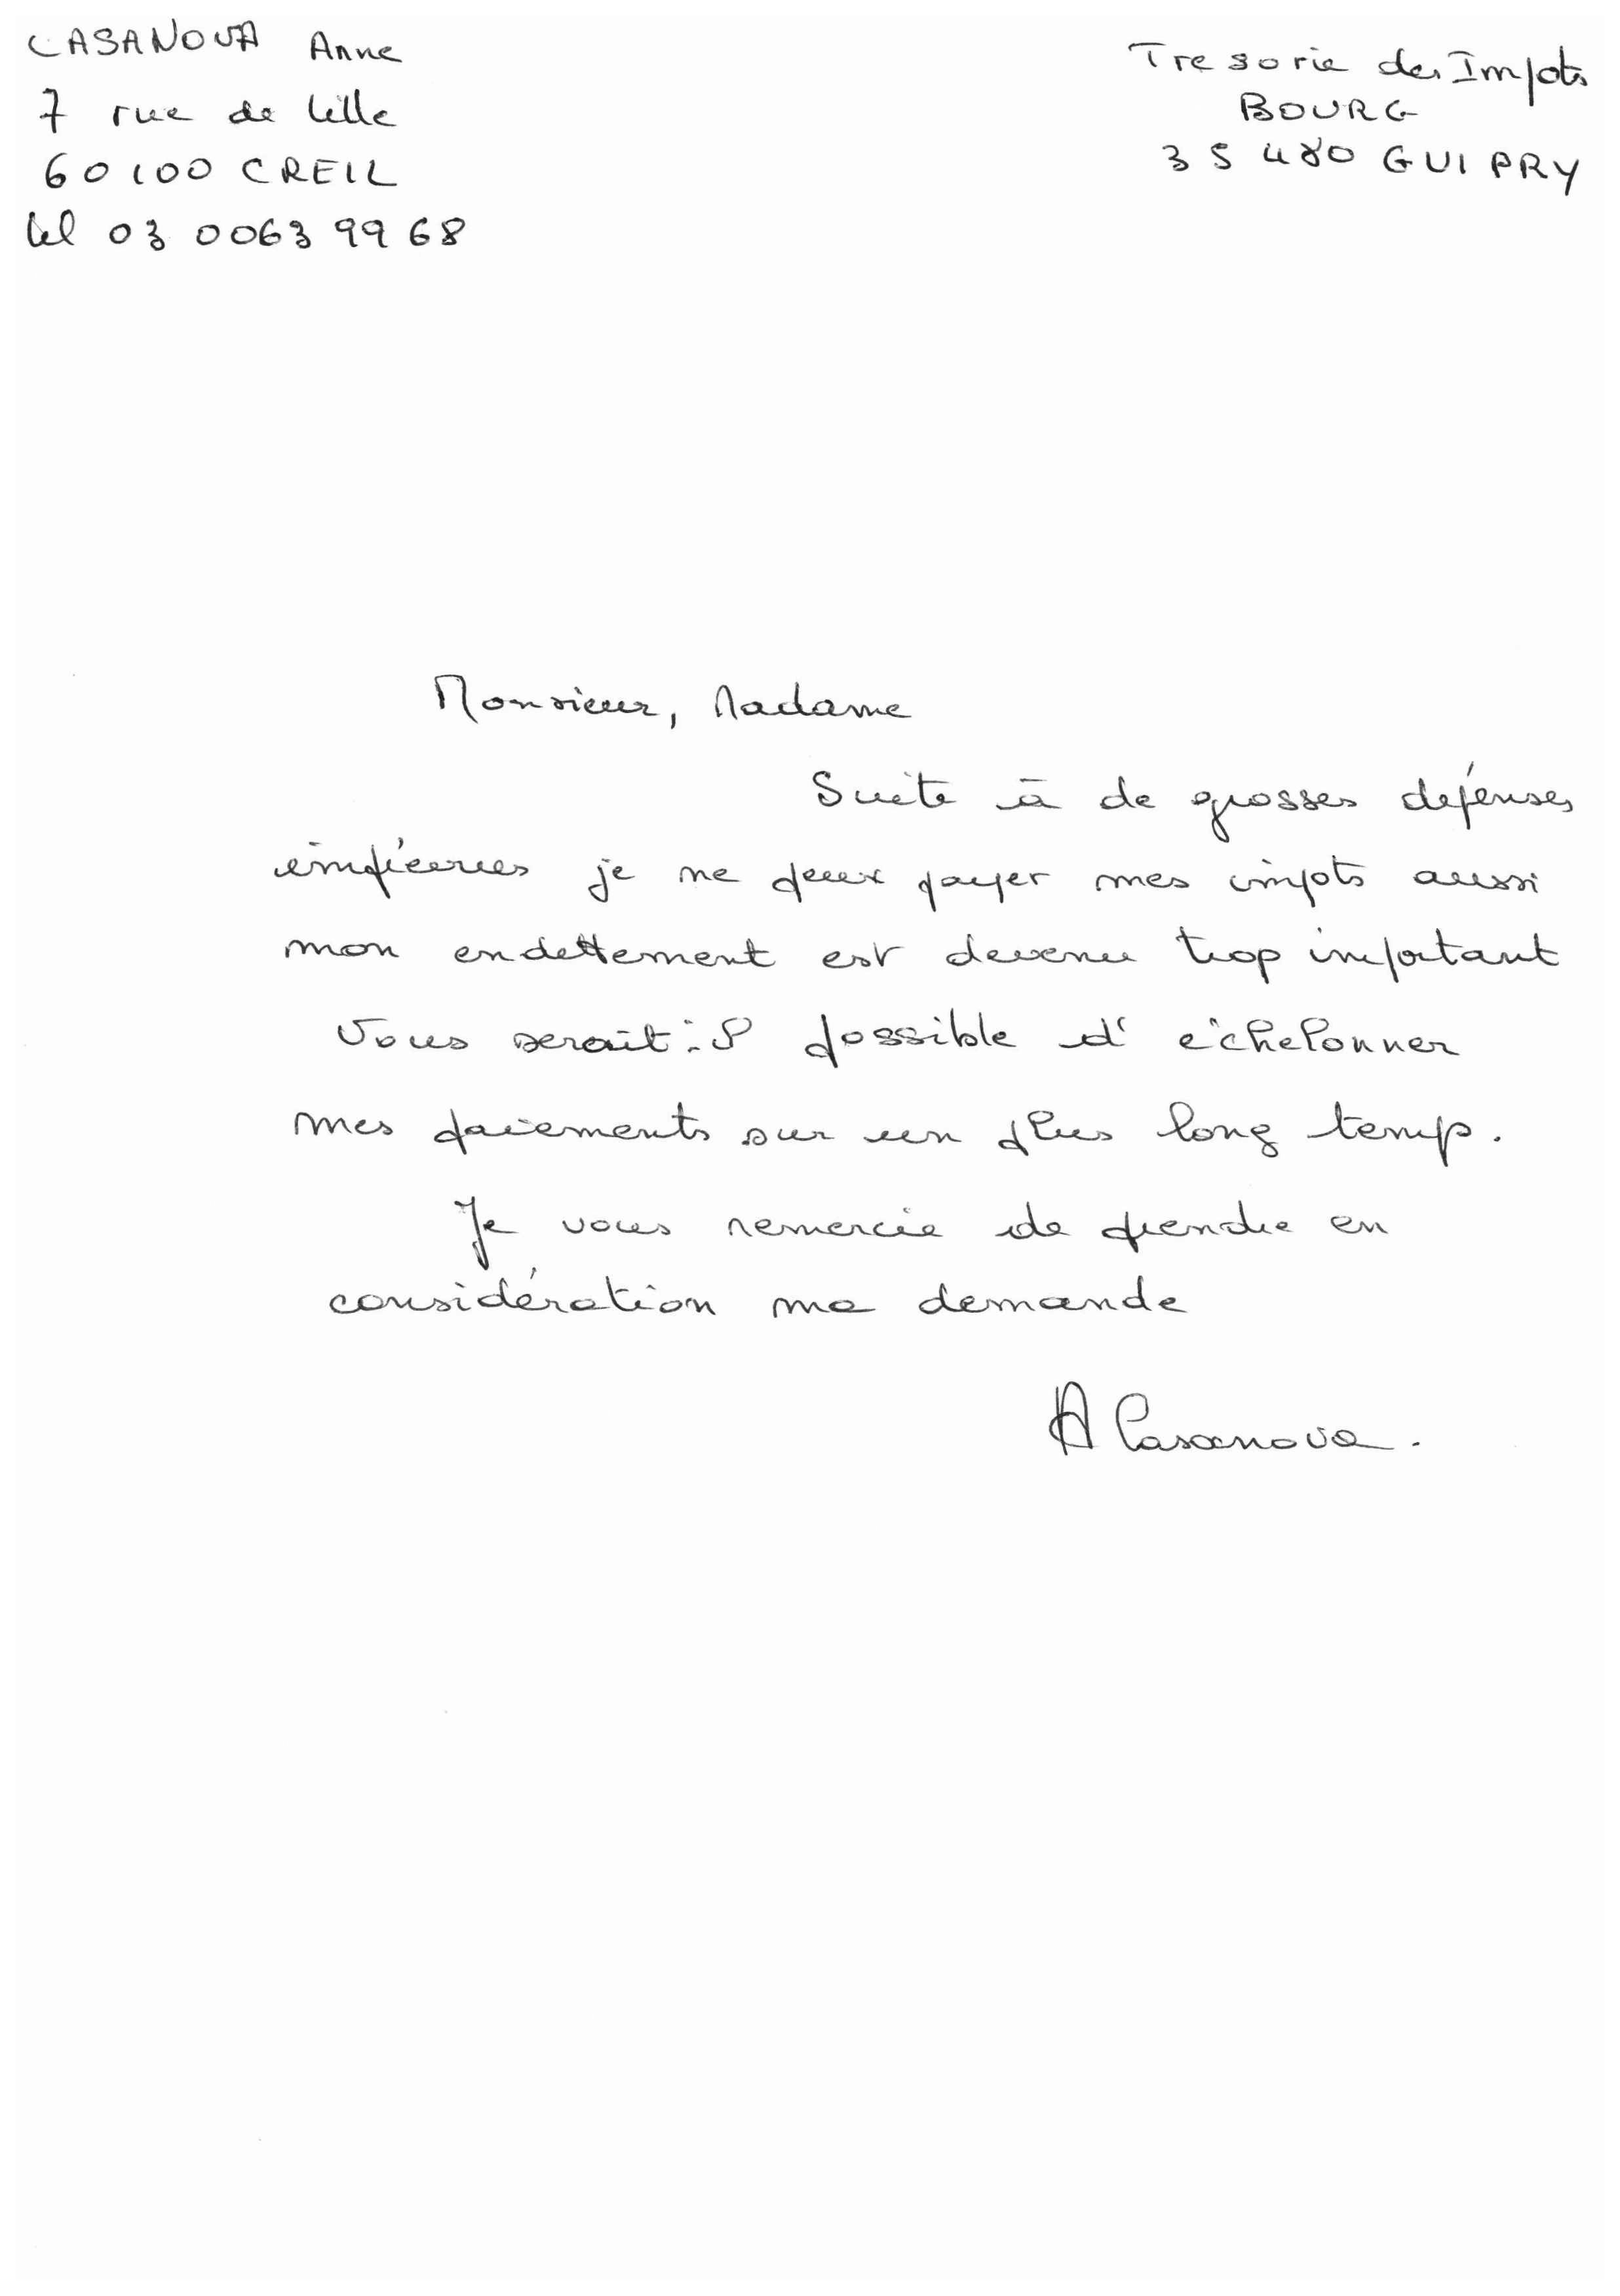 CASANOVA Anne
7 rue de lille
60100 CREIL
tel 03 0063 99 68
Tresorie des Impots
BOURG
35480 GUIPRY
Monsieur, Madame
Suite à de grosses depénses
impéevues je ne peux payer mes impots aussi
mon endettement est devenu trop important
Vous serait-il possible d'échelonner
mes paiements sur un plus long temps.
Je vous remercie de prendre en
considération ma demande
A Casanova.